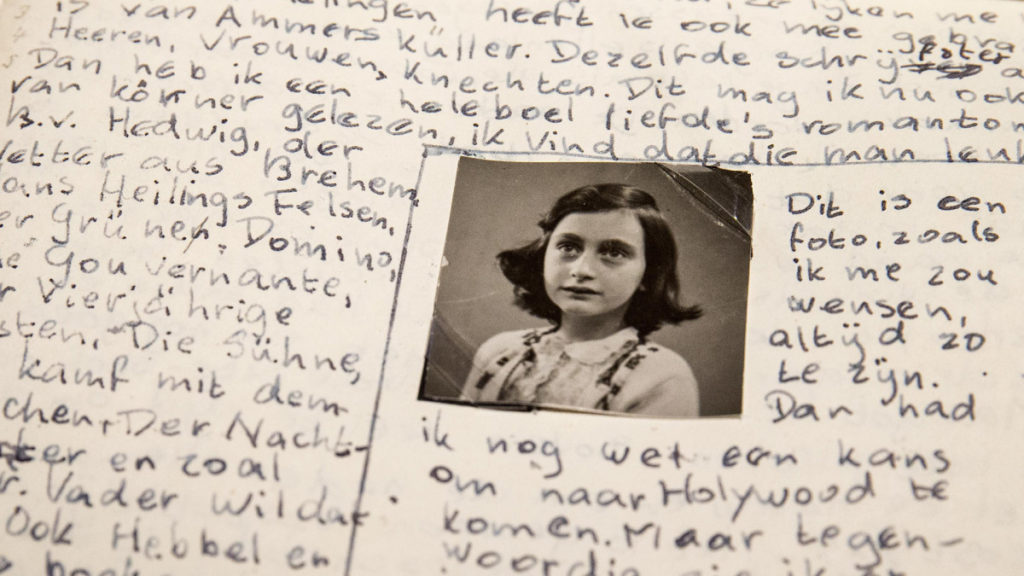 is van Ammers Küller. Dezelfde schrijfster
Heeren, Vrouwen, Knechten. Dit mag ik nu ook
Dan heb ik een heleboel liefde's romanton
van Körner gelezen, ik vind dat die man
B.v. Hedwig, der
Vetter aus Brehem,
Hans Heilings Felsen,
Grünen, Domino,
Gouvernante,
Vierjährige
Die Sühne,
kamf mit dem
Der Nacht-
en zoal
Vader Wildat
Ook Hebbel en
Dit is een
foto, zoals
ik me zou
wensen,
altijd zo
te zijn.
Dan had
ik nog wet een kans
om naar Holywood te
komen. Maar tegen-
woordig